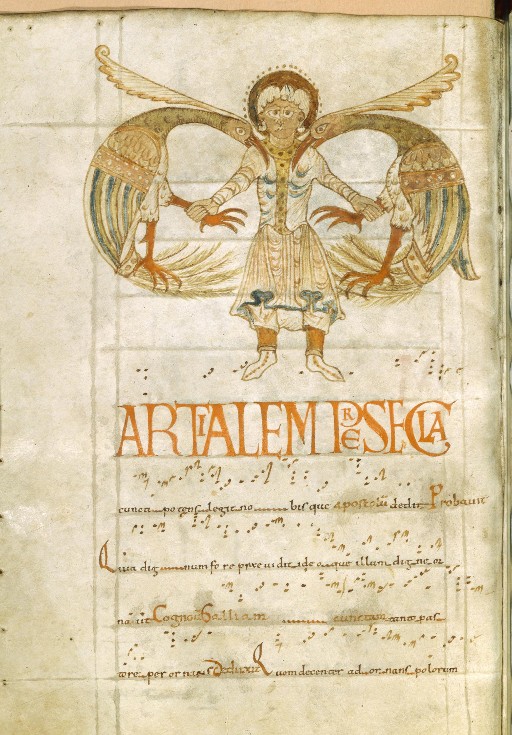 ARTIALEM PRE SECLA
cuncta potens legit no bisque apostolū dedit Probauit
Quia dig num fo re preui dit ide oque illum dig ne or
na uit Galliam cunctam tanto pas
tore per or nans Deduxit Quem decenter ad or nans polorum